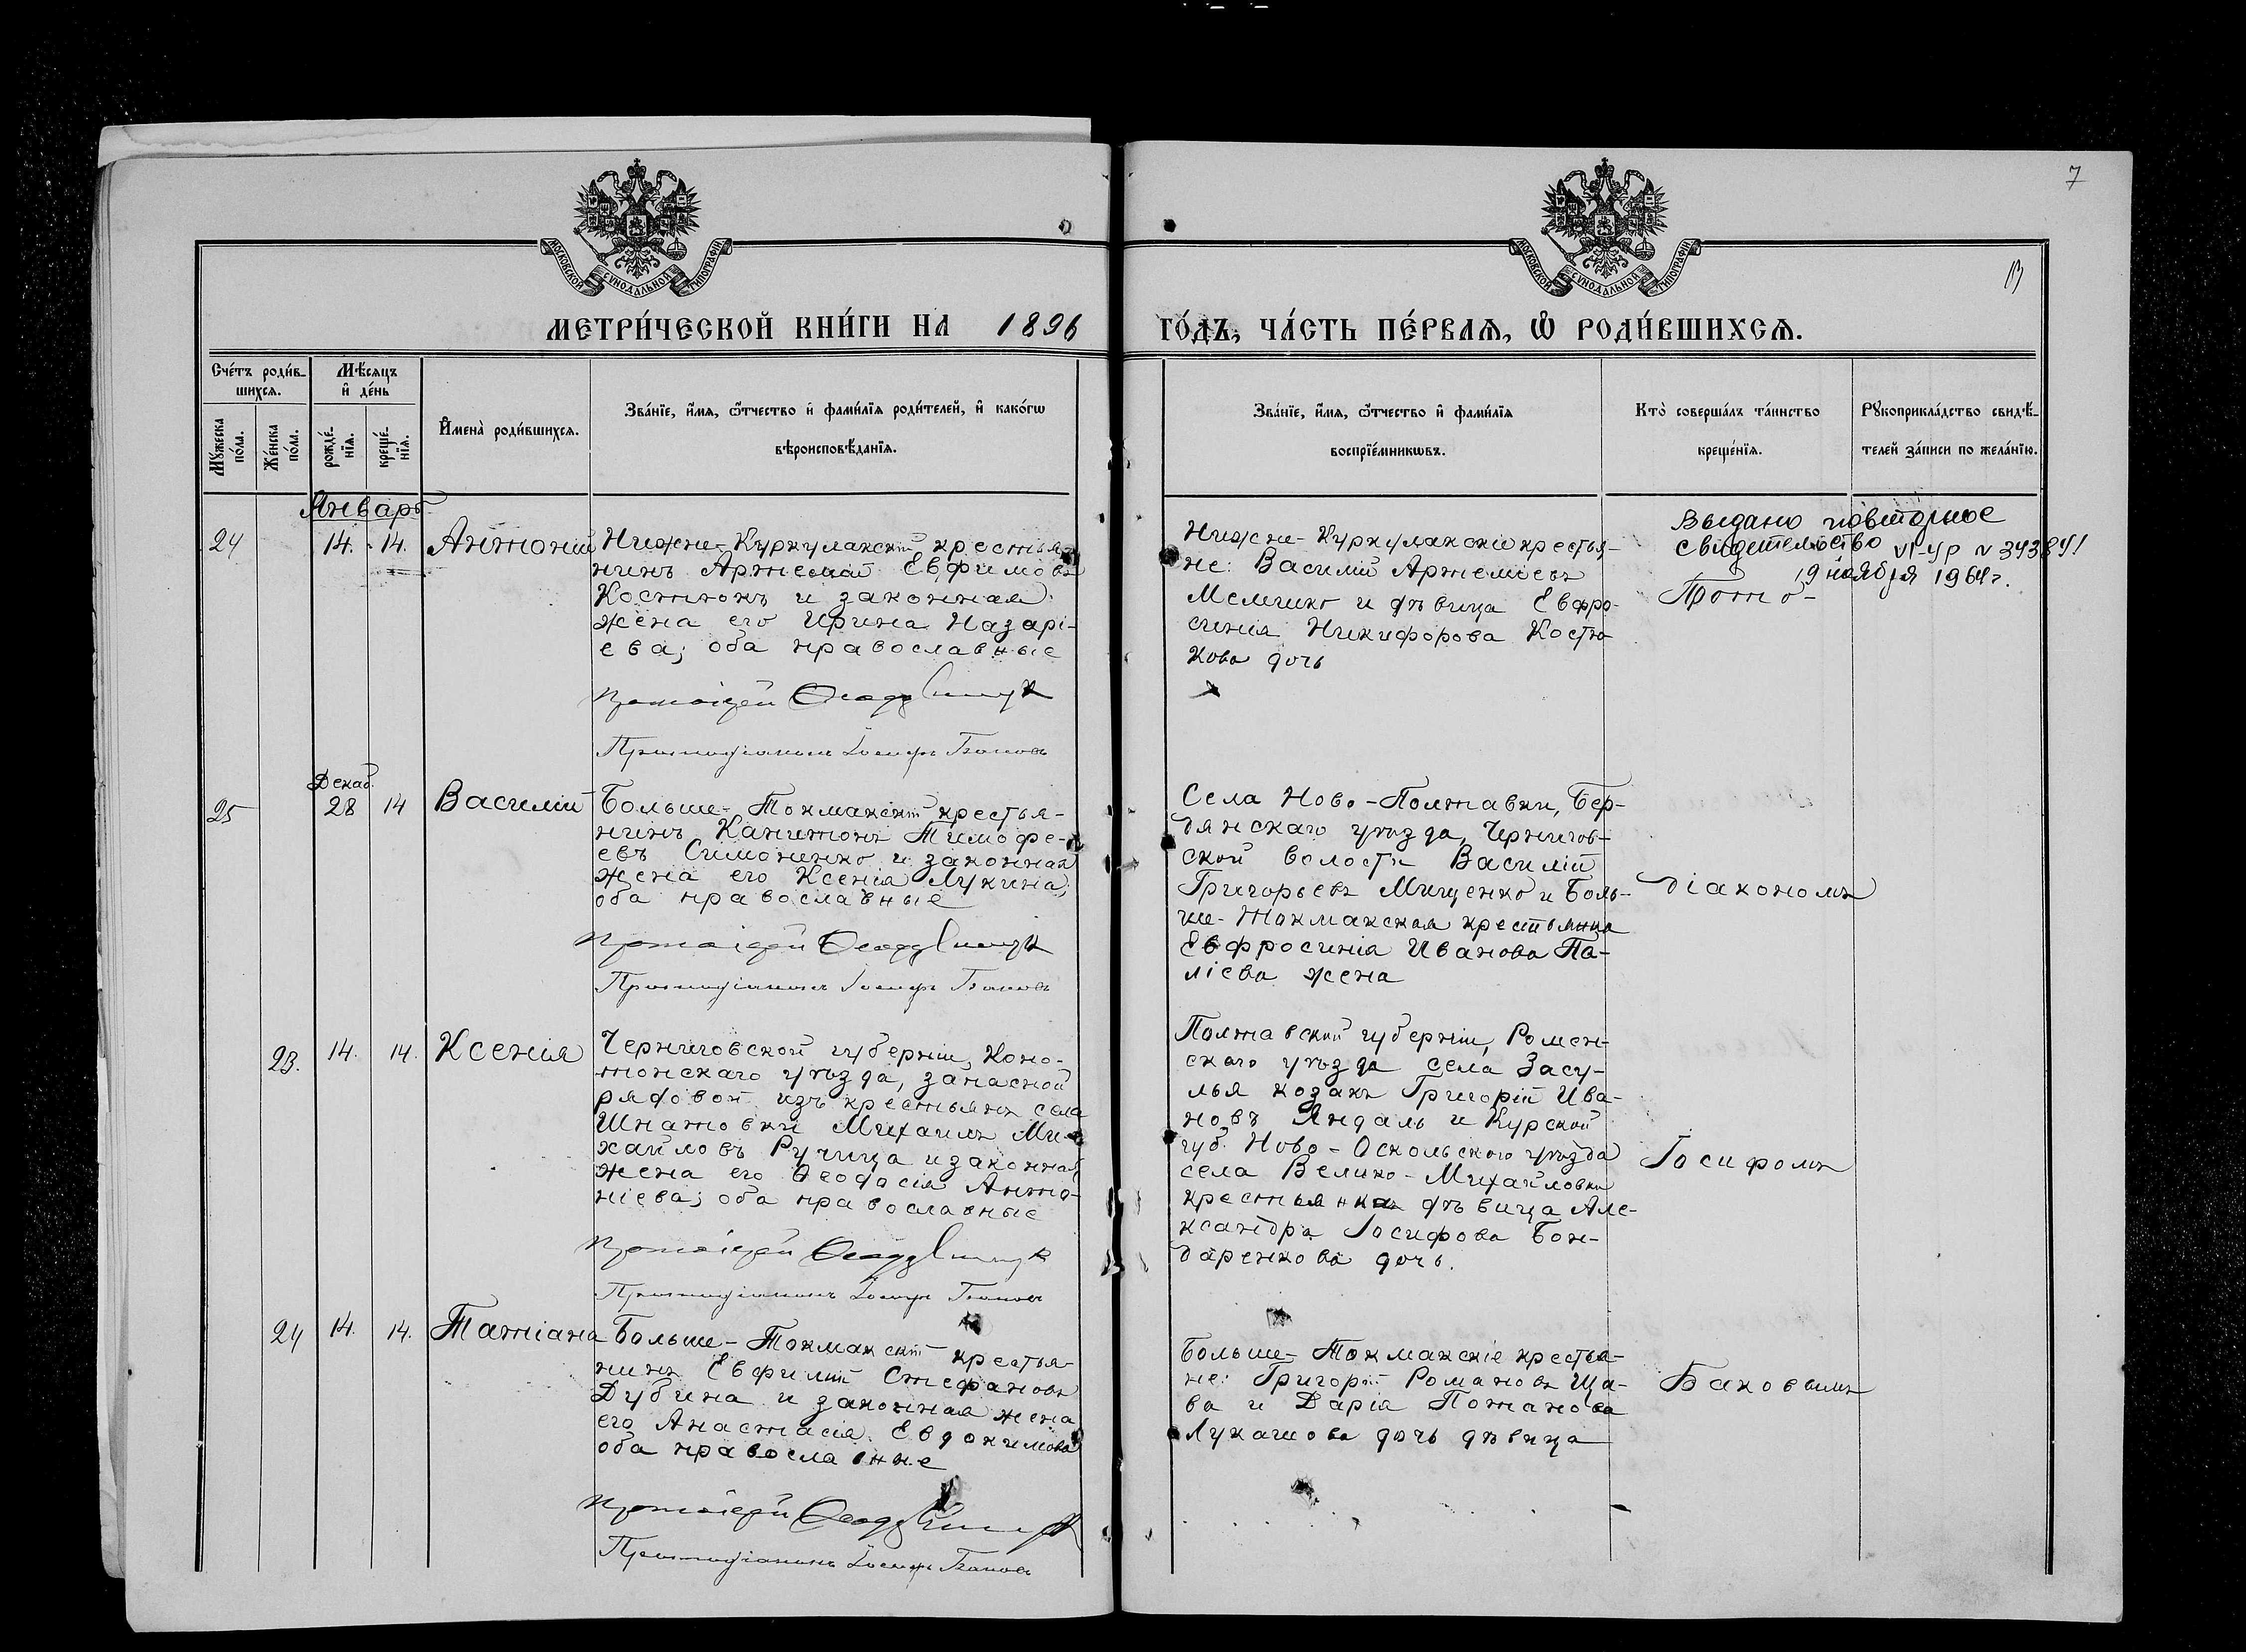 7
МОСКОВСКОЙ СѴНОДАЛЬНОЙ ТИПОГРАФІИ
МОСКОВСКОЙ СѴНОДАЛЬНОЙ ТИПОГРАФІИ
МЕТРИ́ЧЕСКОЙ КНИ́ГИ НА 1896 ГО́ДЪ, ЧА́СТЬ ПЕ́РВАѦ, Ѡ҆ РОДИ́ВШИХСѦ.
Сче́тъ роди́в-
шихсѧ.
Мѣ́сѧцъ
и҆ де́нь
Мꙋ́жеска по́ла.
Же́нска по́ла.
рожде́-
нїѧ.
креще́-
нїѧ.
И҆мена̀ роди́вшихсѧ.
Зва́нїе, и҆́мѧ, ѻ҆́тчество и҆ фами́лїѧ роди́телей, и҆ како́гѡ
вѣроисповѣ́данїѧ.
Зва́нїе, и҆́мѧ, ѻ҆́тчество и҆ фами́лїѧ
воспрїе́мникѡвъ.
Кто̀ соверша́лъ та́инство
креще́нїѧ.
Рꙋкоприкла́дство свидѣ́-
телей за́писи по жела́нїю.
Январь
24 14. 14. Антоній
Нижне-Куркулакскій крестья-
нинъ Артемій Евфимовъ
Костюкъ и законная
жена его Ирина Назарі-
ева; оба православные
Протоіерей
Протодіаконъ Іосифъ Баковъ
Нижне-Куркулакскіе крестья-
не: Василій Артеміевъ
Мемчико и дѣвица Евфро-
синія Никифорова Костю-
кова дочь
Выдано повторное
свидетельство VI-УР N 343841
19 ноября 1964 г.
Прото-
Декаб.
25 28 14 Василій
Больше-Токмакскій крестья-
нинъ Капитонъ Тимофе-
евъ Симоненко и законная
жена его Ксенія Лукина;
оба православные
Протоіерей
Протодіаконъ Іосифъ Баковъ
Села Ново-Полтавки, Бер-
дянскаго уѣзда, Чернигов-
ской волости Василій
Григорьевъ Мищенко и Боль-
ше-Токмакская крестьянка
Евфросинія Иванова Па-
ліева жена
діакономъ
23. 14. 14. Ксенія
Черниговской губерніи, Коно-
топскаго уѣзда, запасной
рядовой изъ крестьянъ села
Шпатовки Михаилъ Ми-
хайловъ Ручица и законная
жена его Ѳеодосія Анто-
ніева; оба православные
Протоіерей
Протодіаконъ Іосифъ Баковъ
Полтавской губерніи, Ромен-
скаго уѣзда села Засу-
лья козакъ Григорій Ива-
новъ Яндаль и Курской
губ. Ново-Оскольскаго уѣзда
села Велико-Михайловки
крестьянка дѣвица Але-
ксандра Іосифова Бон-
даренкова дочь.
Іосифомъ
24 14. 14. Татіана
Больше-Токмакскій крестья-
нинъ Евфимій Стефановъ
Дубина и законная жена
его Анастасія Евдокимова
оба православные
Протоіерей
Протодіаконъ Іосифъ Баковъ
Больше-Токмакскіе крестья-
не: Григорій Романовъ Ща-
ва и Дарія Потапова
Лукашова дочь дѣвица
Баковымъ